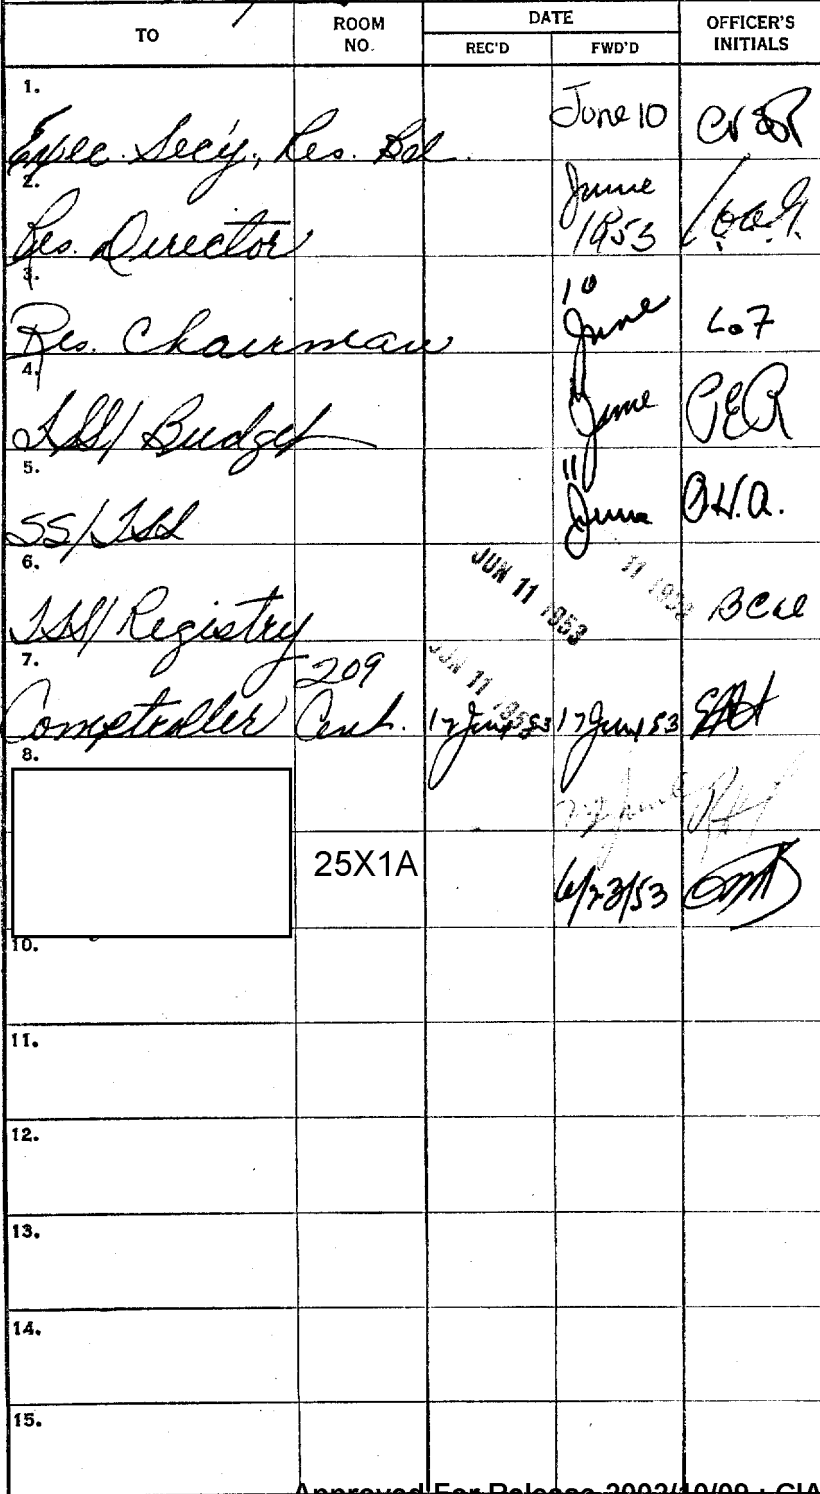 TO
ROOM NO.
DATE
REC'D
FWD'D
OFFICER'S INITIALS
1.
Exec. Sec'y, Res. Bd.
June 10
2.
Res. Director
June 1953
3.
Res. Chairman
10 June
4.
TSS/Budget
June
PER
5.
SS/TSS
11 June
O.H.A.
6.
TSS/Registry
JUN 11 1953
11 195
7.
Comptroller
209 Cent.
JUN 11 195
17 Jun 53
17 Jun 53
8.
June
25X1A
6/23/53
10.
11.
12.
13.
14.
15.
Approved For Release 2002/10/09 : CIA